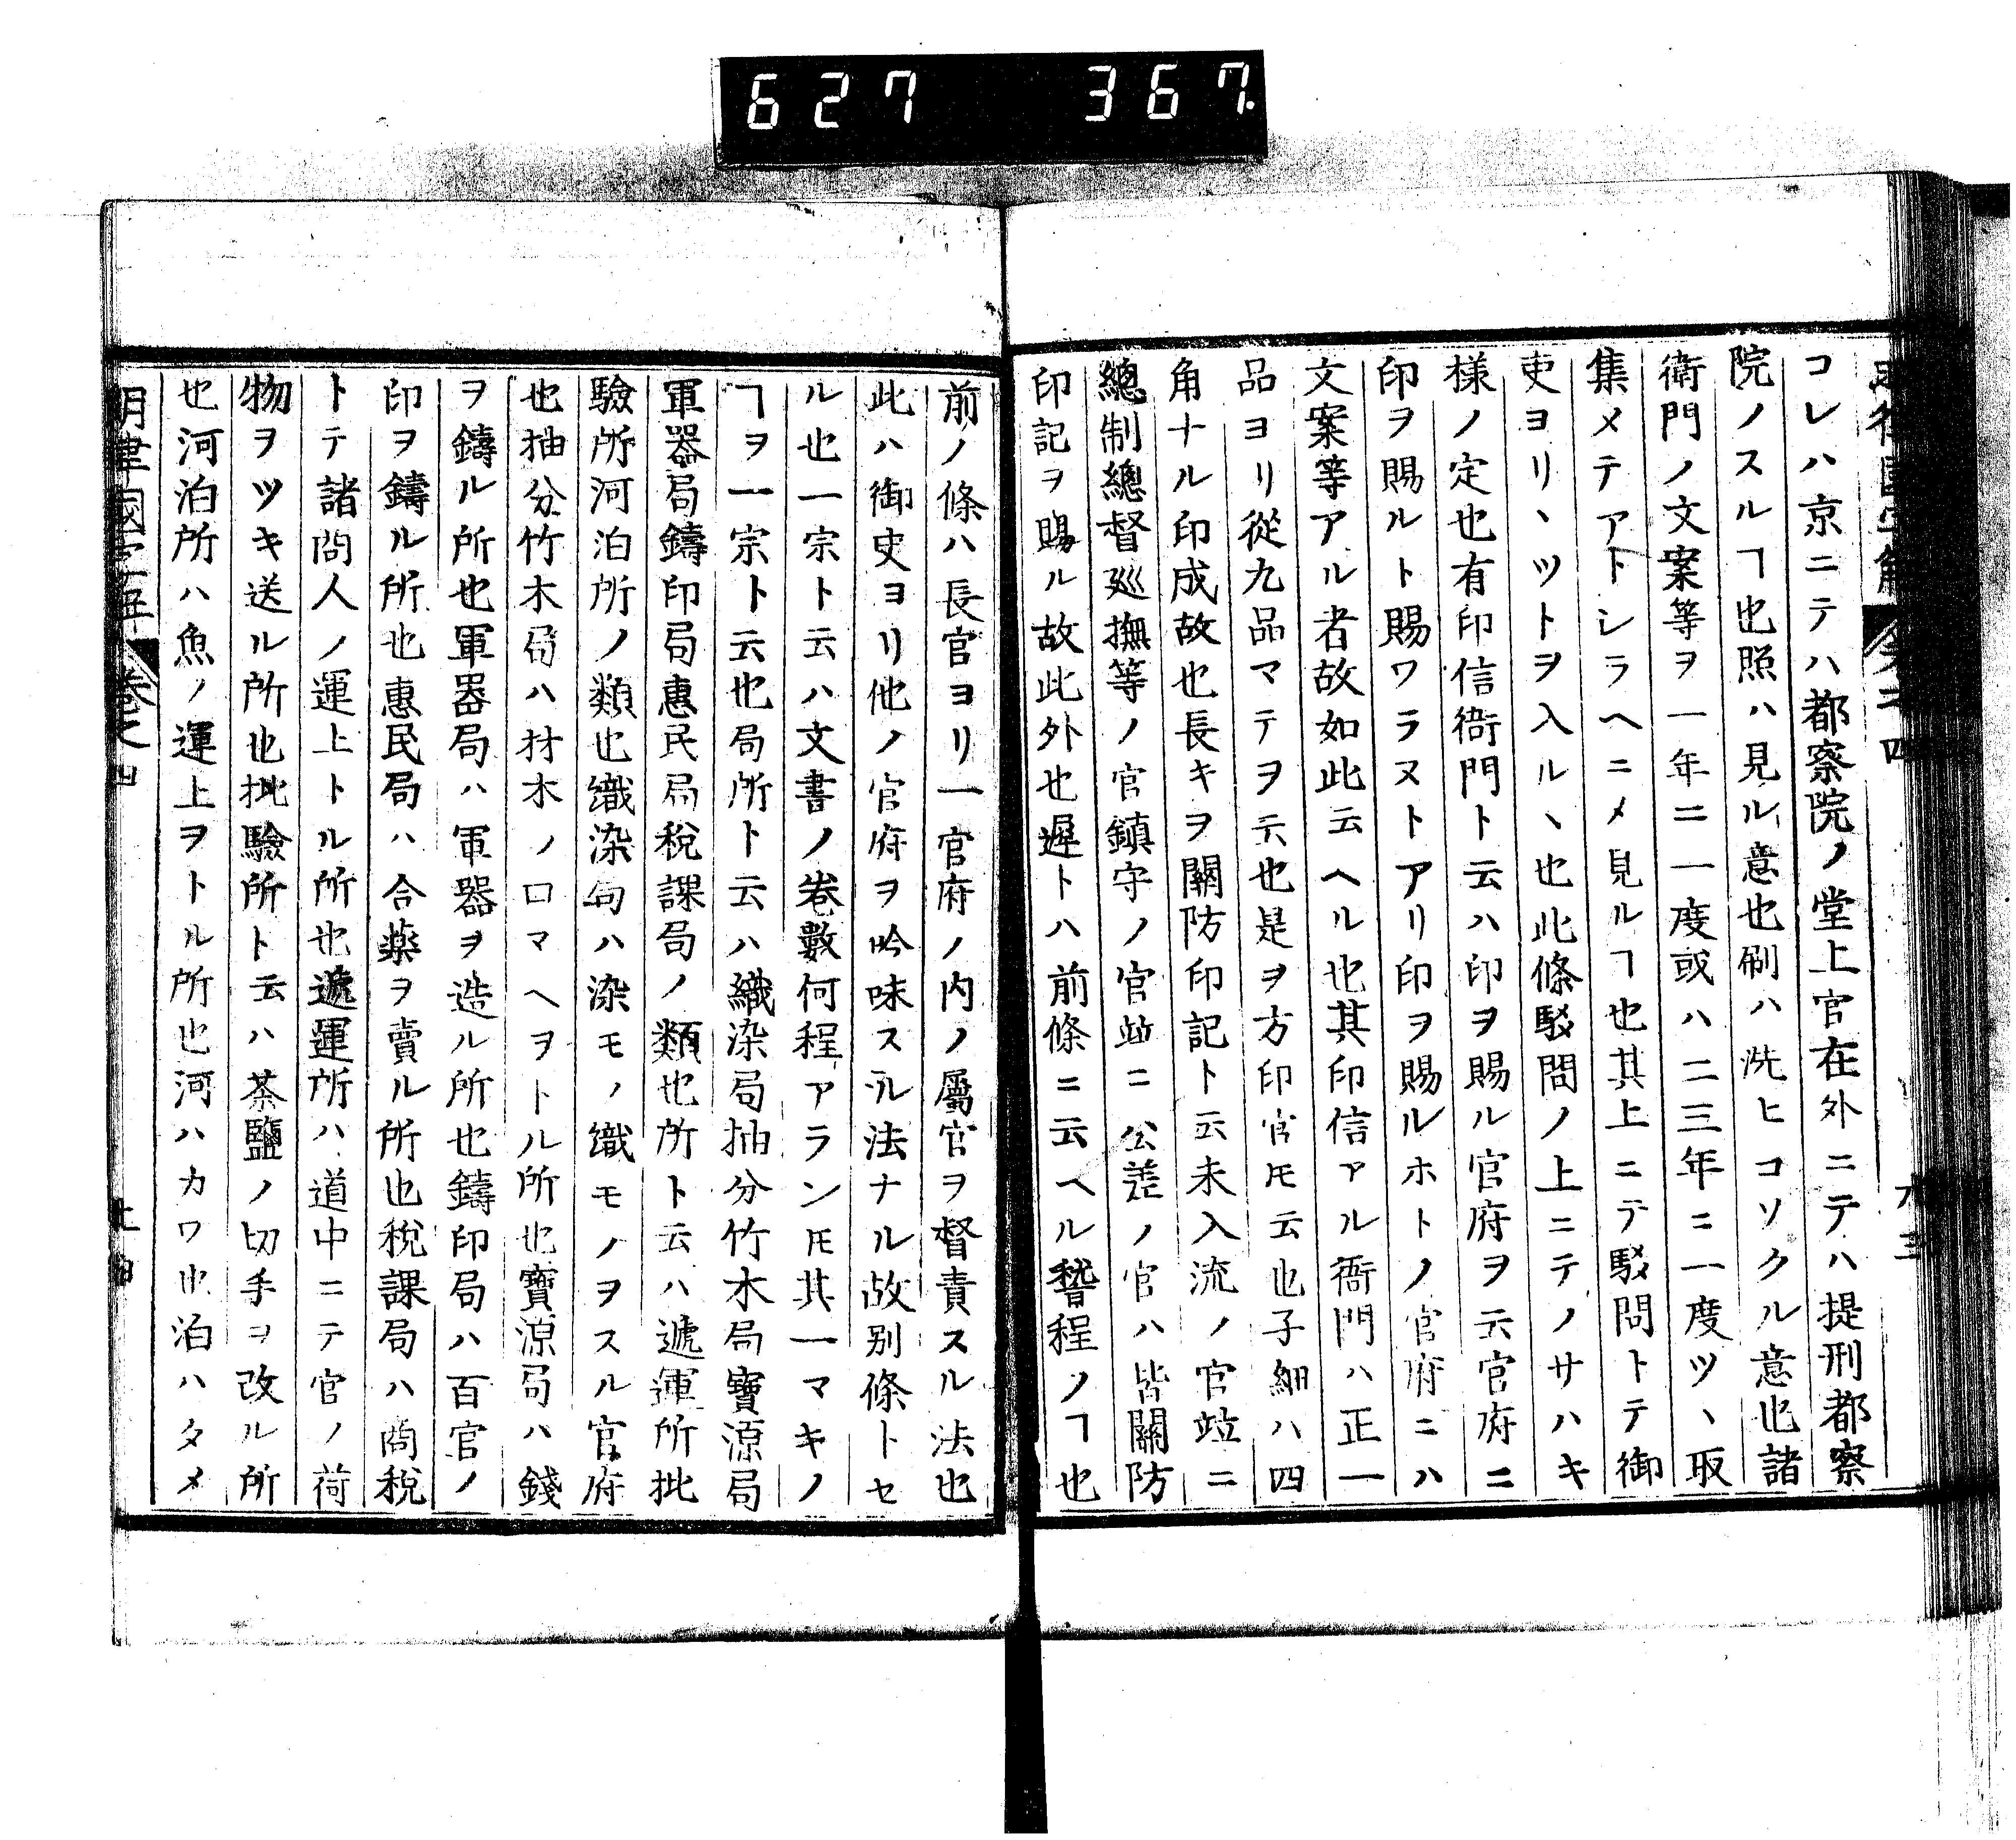 627 367
コレハ京ニテハ都察院ノ堂上官在外ニテハ提刑都察
院ノスルヿ也照ハ見ル意也刷ハ洗ヒコソクル意也諸
衛門ノ文案等ヲ一年ニ一度或ハ二三年ニ一度ツヽ取
集メテアトシラヘニメ見ルヿ也其上ニテ駁問トテ御
吏ヨリヽツトヲ入ルヽ也此條駁問ノ上ニテノサハキ
様ノ定也有印信衙門ト云ハ印ヲ賜ル官府ヲ云官府ニ
印ヲ賜ルト賜ワラヌトアリ印ヲ賜ルホトノ官府ニハ
文案等アル者故如此云ヘル也其印信アル衙門ハ正一
品ヨリ從九品マテヲ云也是ヲ方印官ㇳモ云也子細ハ四
角ナル印成故也長キヲ關防印記ト云未入流ノ官竝ニ
總制總督廵撫等ノ官鎮守ノ官竝ニ公差ノ官ハ皆關防
印記ヲ賜ル故此外也遲トハ前條ニ云ヘル稽程ノヿ也
前ノ條ハ長官ヨリ一官府ノ内ノ屬官ヲ督責スル法也
此ハ御史ヨリ他ノ官府ヲ吟味スル法ナル故別條トセ
ル也一宗ト云ハ文書ノ卷數何程アランㇳモ其一マキノ
ヿヲ一宗ト云也局所ト云ハ織染局抽分竹木局寶源局
軍器局鑄印局惠民局稅課局ノ類也所ト云ハ遞運所批
驗所河泊所ノ類也織染局ハ染モノ織モノヲスル官府
也抽分竹木局ハ材木ノ口マヘヲトル所也寶源局ハ錢
ヲ鑄ル所也軍器局ハ軍器ヲ造ル所也鑄印局ハ百官ノ
印ヲ鑄ル所也惠民局ハ合藥ヲ賣ル所也稅課局ハ商稅
トテ諸商人ノ運上トル所也遞運所ハ道中ニテ官ノ荷
物ヲツキ送ル所也批驗所ト云ハ茶鹽ノ切手ヲ改ル所
也河泊所ハ魚ノ運上ヲトル所也河ハカワ也泊ハタメ